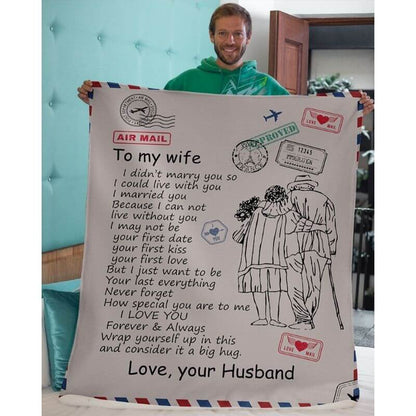 AIR MAIL
APPROVED
LOVE MAIL
12345
To my wife
I didn't marry you so
I could live with you
I married you
Because I can not
live without you
I may not be
your first date
your first kiss
your first love
But I just want to be
Your last everything
Never forget
How special you are to me
I LOVE YOU
Forever & Always
Wrap yourself up in this
and consider it a big hug.
Love, your Husband
LOVE MAIL